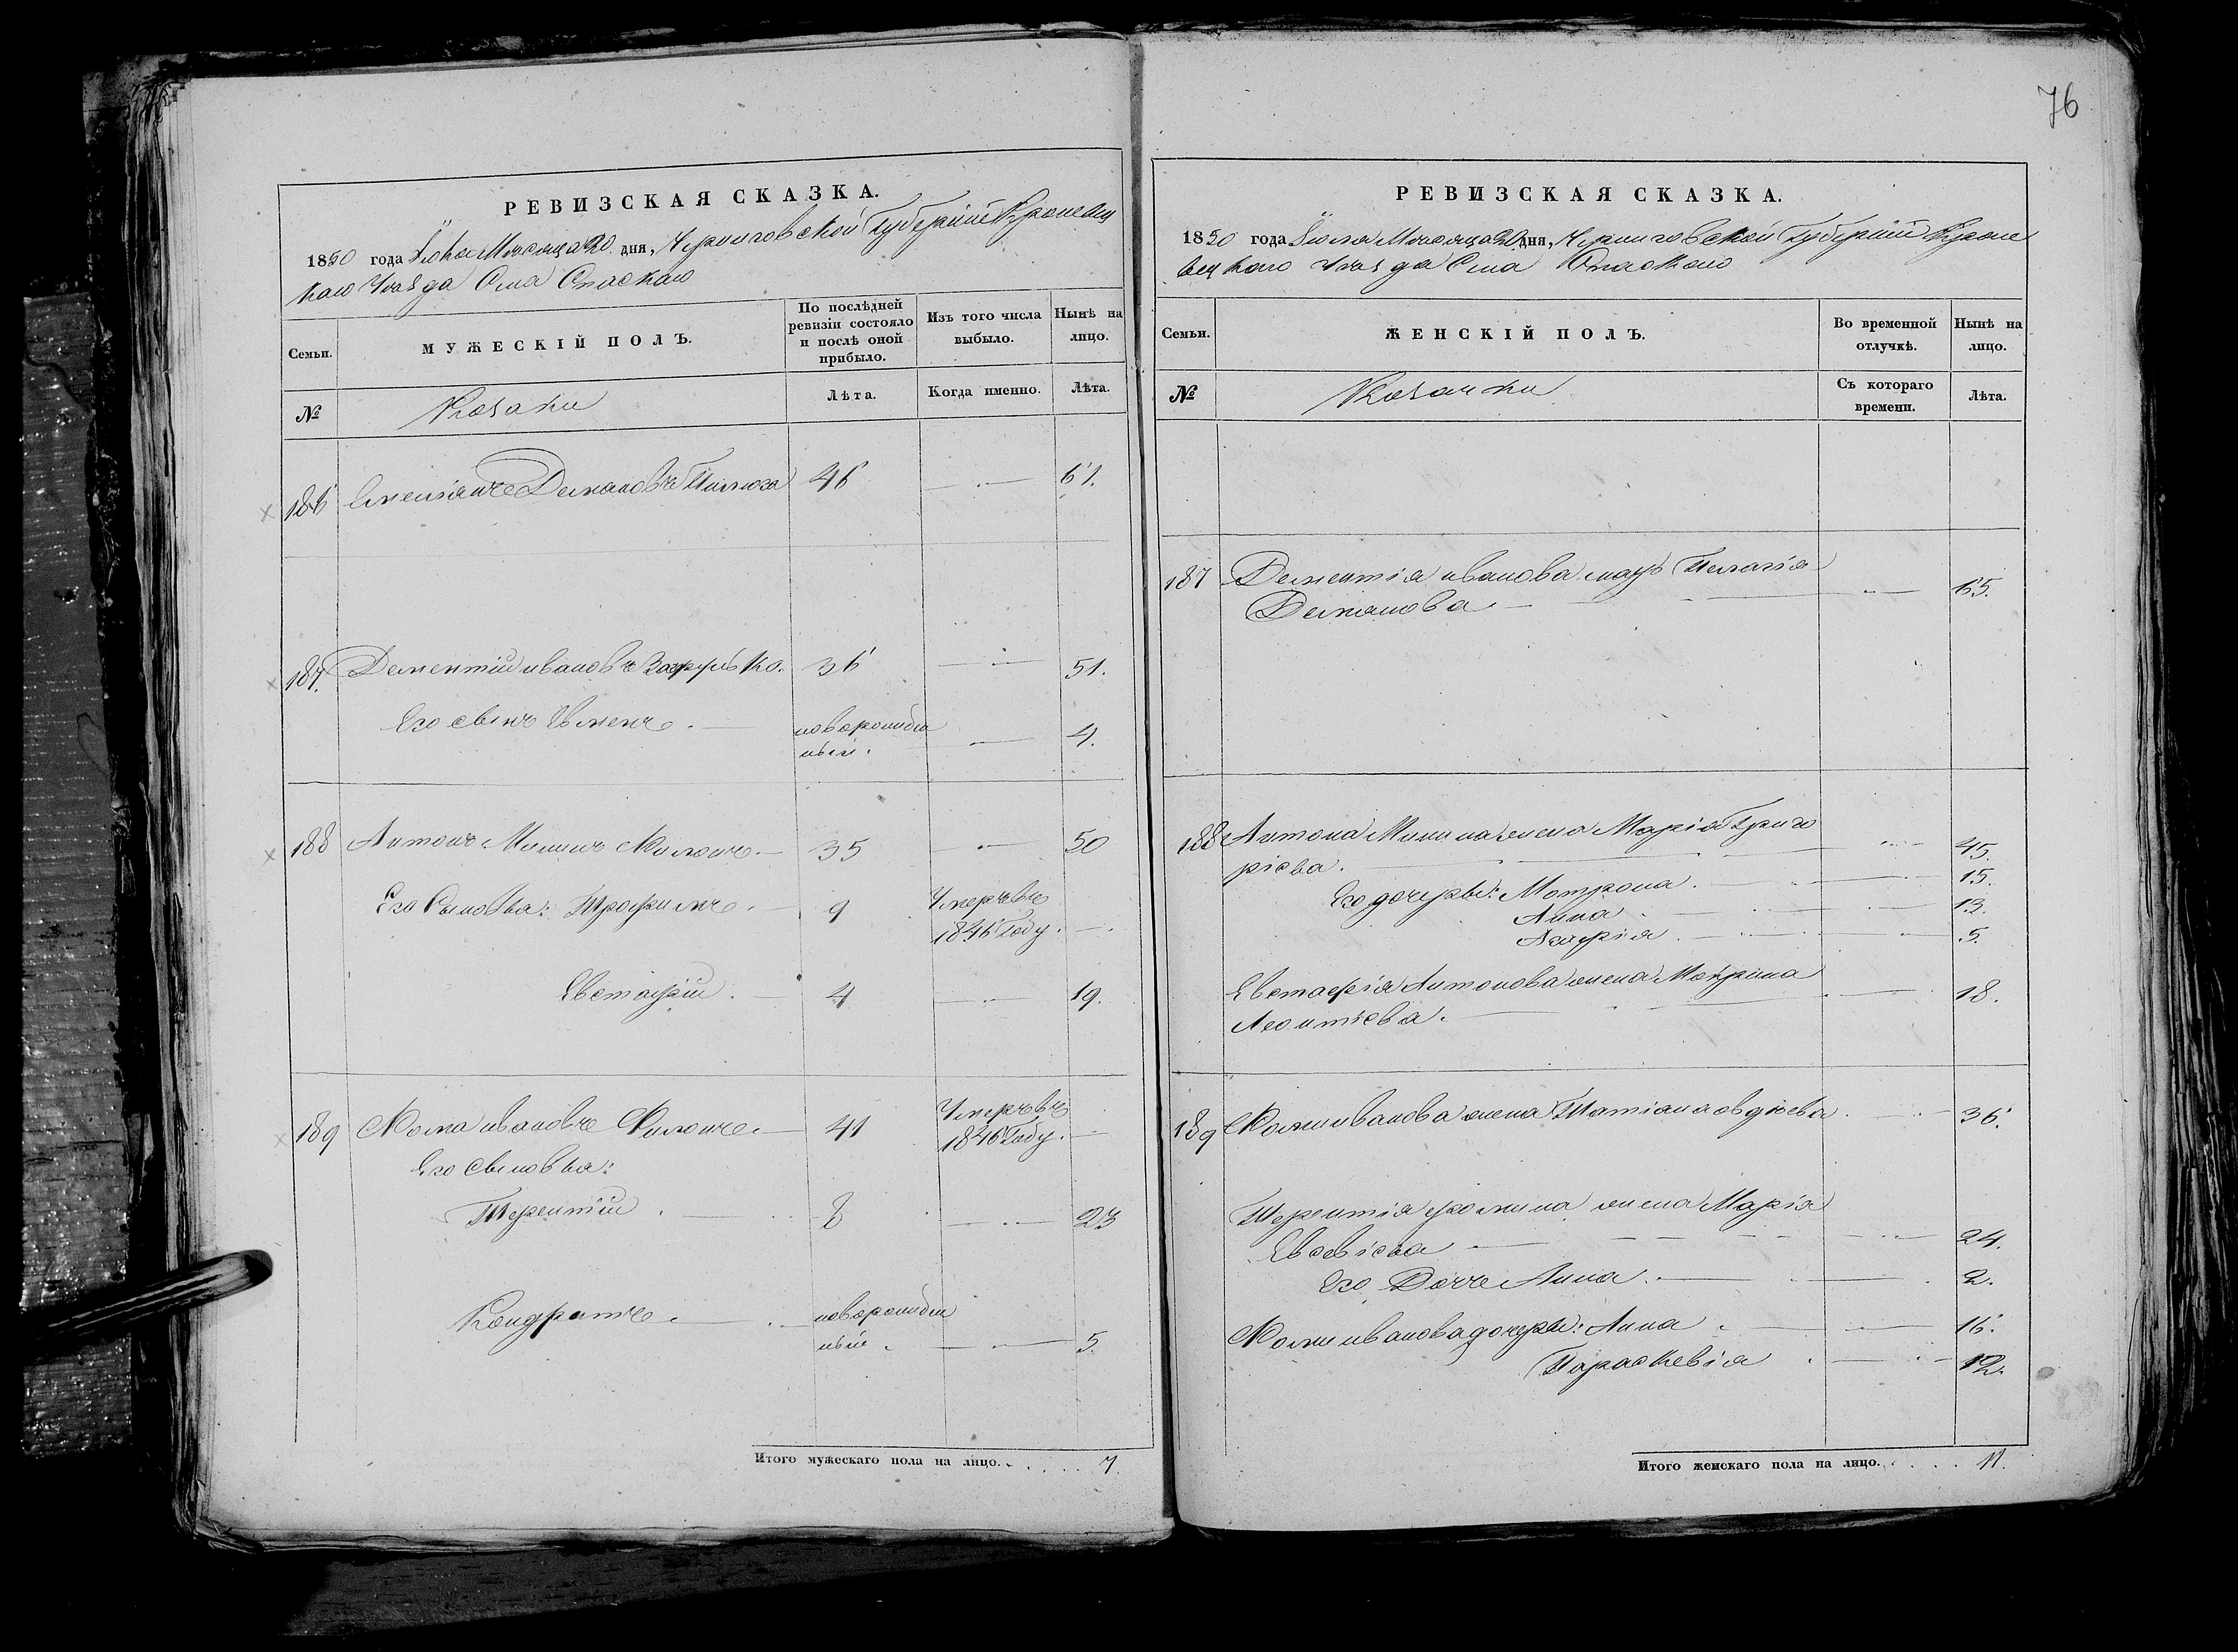 76
РЕВИЗСКАЯ СКАЗКА.
1850 года Іюля Мѣсяца 20 дня, Черниговской Губерніи Кролевец
каго Уѣзда Села Спаскаго
Семьи. МУЖЕСКІЙ ПОЛЪ. По послѣдней ревизіи состояло и послѣ оной прибыло. Изъ того числа выбыло. Нынѣ на лицо.
№ Козаки Лѣта. Когда именно. Лѣта.
186 Демяновъ 46 61.
187. Дементій ивановъ 36 51.
Его сынъ 
новорожден
ный. 4.
188 Антонъ Мининъ 35 50
Его Сыновья: Трофимъ 9 Умеръ въ
1846 Году.
Евстафій 4 19.
189 Фома ивановъ 41 Умеръ въ
1846 Году.
Его Сыновья:
Терентій 8 23
Кондратъ новорожден
ный 5.
Итого мужескаго пола на лицо. 7.
РЕВИЗСКАЯ СКАЗКА.
1850 года Іюля Мѣсяца 20 дня, Черниговской Губерніи Кроле
вецкаго Уѣзда Села Спаскаго
Семьи. ЖЕНСКІЙ ПОЛЪ. Во временной отлучкѣ. Нынѣ на лицо.
№ Козачки Съ котораго времени. Лѣта.
187 Дементія иванова мать Пелагія
Демянова 65.
188 Антона Минина жена Марія Григо
ріева. 45.
Его дочери: Мотрона. 15.
Анна 13.
5.
Евстафія Антонова жена
Леонтьева. 18.
189 Фомы иванова жена Татіана овдіева 36.
Терентія фомина жена Марія
Евсевіева 24.
Его Дочь Анна. 2.
Фомы иванова дочери: Анна 16.
Параскевія 12.
Итого женскаго пола на лицо. 11.